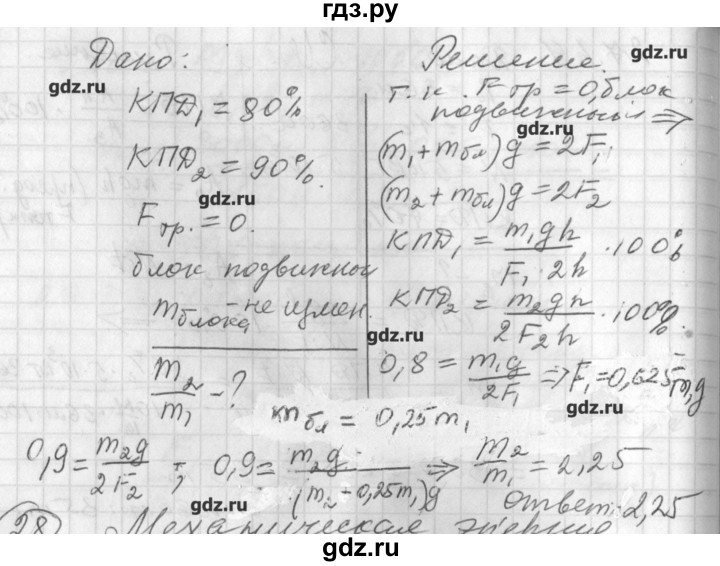 гдз.ру
Дано:
КПД₁ = 80%
КПД₂ = 90%.
Fтр. = 0.
блок подвижный
mблока - не измен.
m₂/m₁ - ?
Решение.
т.к. Fтр = 0, блок
подвижный ⇒
(m₁ + mбл)g = 2F₁
(m₂ + mбл)g = 2F₂
КПД₁ = m₁gh / F₁·2h · 100%
КПД₂ = m₂gh / 2F₂h · 100%.
0,8 = m₁g / 2F₁ ⇒ F₁ = 0,625m₁g
mбл = 0,25m₁
0,9 = m₂g / 2F₂ ; 0,9 = m₂g / (m₂ - 0,25m₁)g ⇒ m₂/m₁ = 2,25
ответ: 2,25
28 Механическая энергия
gdz.ru
gdz.ru
gdz.ru
gdz.ru
gdz.ru
gdz.ru
gdz.ru